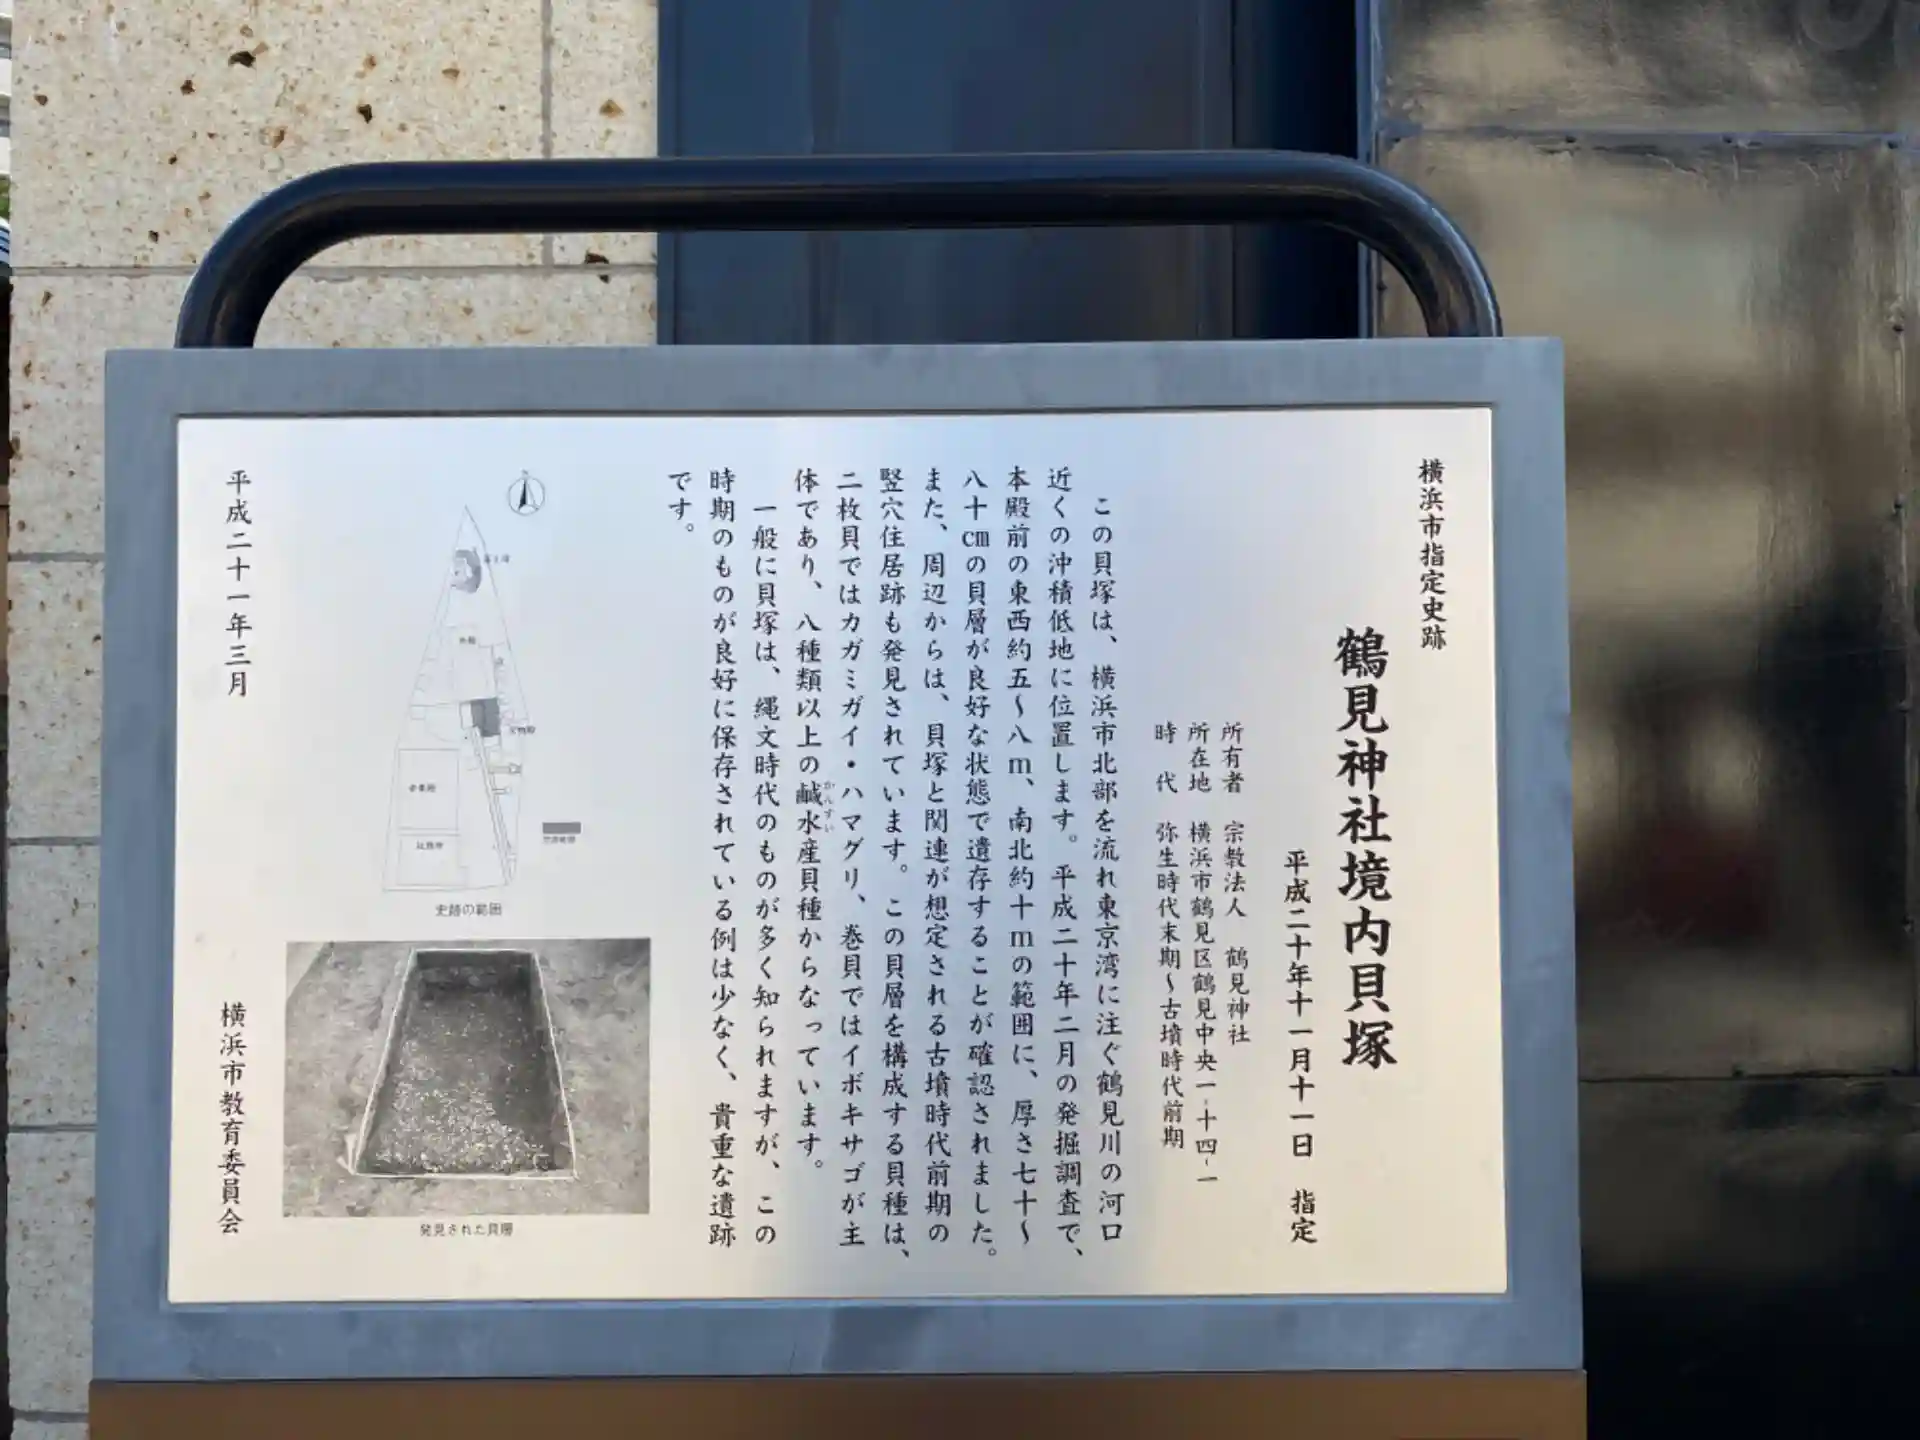 横浜市指定史跡
鶴見神社境内貝塚
平成二十年十一月十一日 指定
所有者 宗教法人 鶴見神社
所在地 横浜市鶴見区鶴見中央一-十四-一
時 代 弥生時代末期～古墳時代前期
この貝塚は、横浜市北部を流れ東京湾に注ぐ鶴見川の河口
近くの沖積低地に位置します。平成二十年二月の発掘調査で、
本殿前の東西約五～八m、南北約十mの範囲に、厚さ七十～
八十cmの貝層が良好な状態で遺存することが確認されました。
また、周辺からは、貝塚と関連が想定される古墳時代前期の
竪穴住居跡も発見されています。この貝層を構成する貝種は、
二枚貝ではカガミガイ・ハマグリ、巻貝ではイボキサゴが主
体であり、八種類以上の鹹水産貝種からなっています。
かんすい
一般に貝塚は、縄文時代のものが多く知られますが、この
時期のものが良好に保存されている例は少なく、貴重な遺跡
です。
史跡の範囲
発見された貝層
平成二十一年三月
横浜市教育委員会